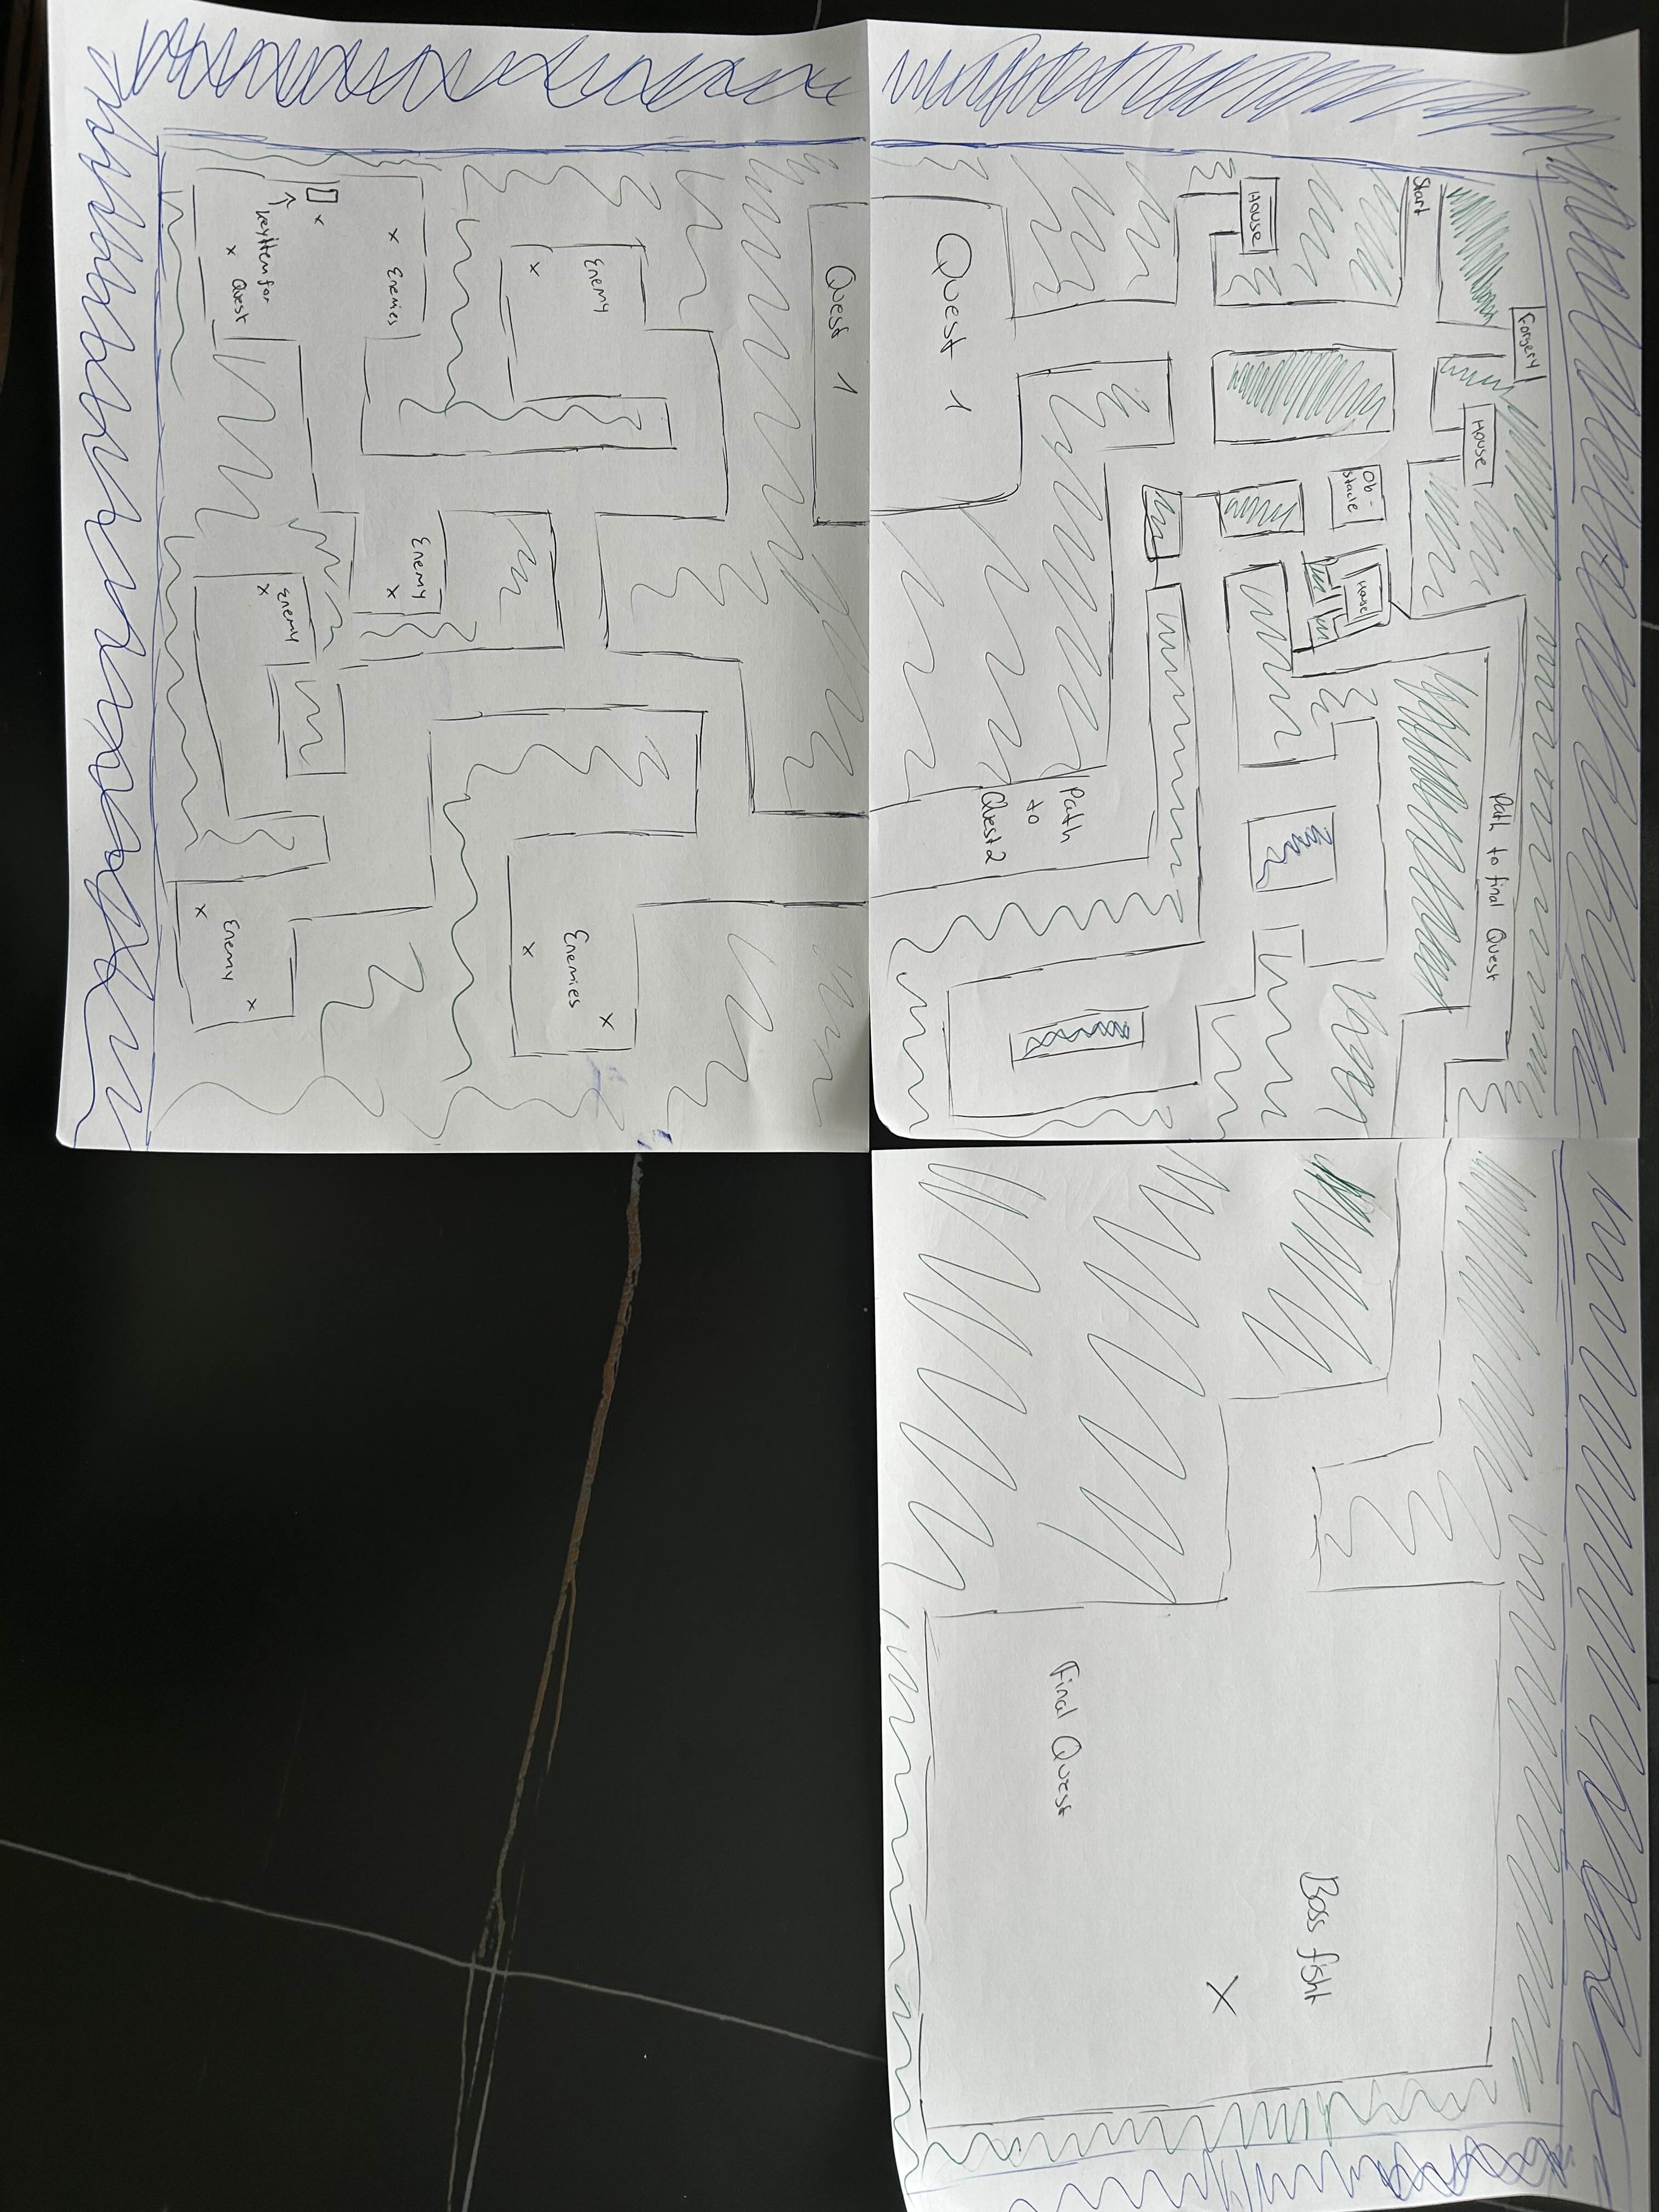 Forgery
House
Path to final Quest
Start
Ob-
stacle
House
House
Path
to
Quest 2
Quest 1
Boss fight
X
Final Quest
Quest 1
Enemy
x
x
Enemies
x
x Enemies
Enemy
x
x
Key Item for
x Quest
Enemy
x
x
Enemy
x